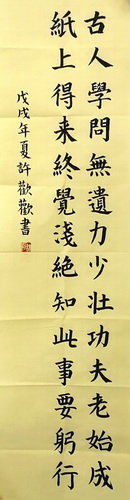 古人學問無遺力少壯功夫老始成
紙上得来終覺淺絕知此事要躬行
戊戌年夏許歡歡書